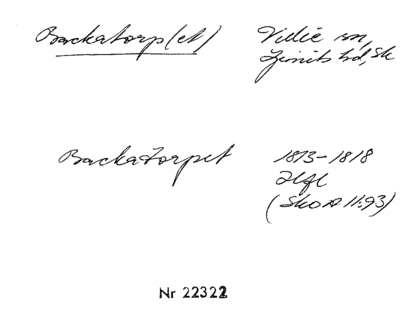 Backatorp(et) Vidtie sn,
Ljunits hd, Sk
Backatorpet 1813-1818
Hfl
(SkoA 11:93)
Nr 22322